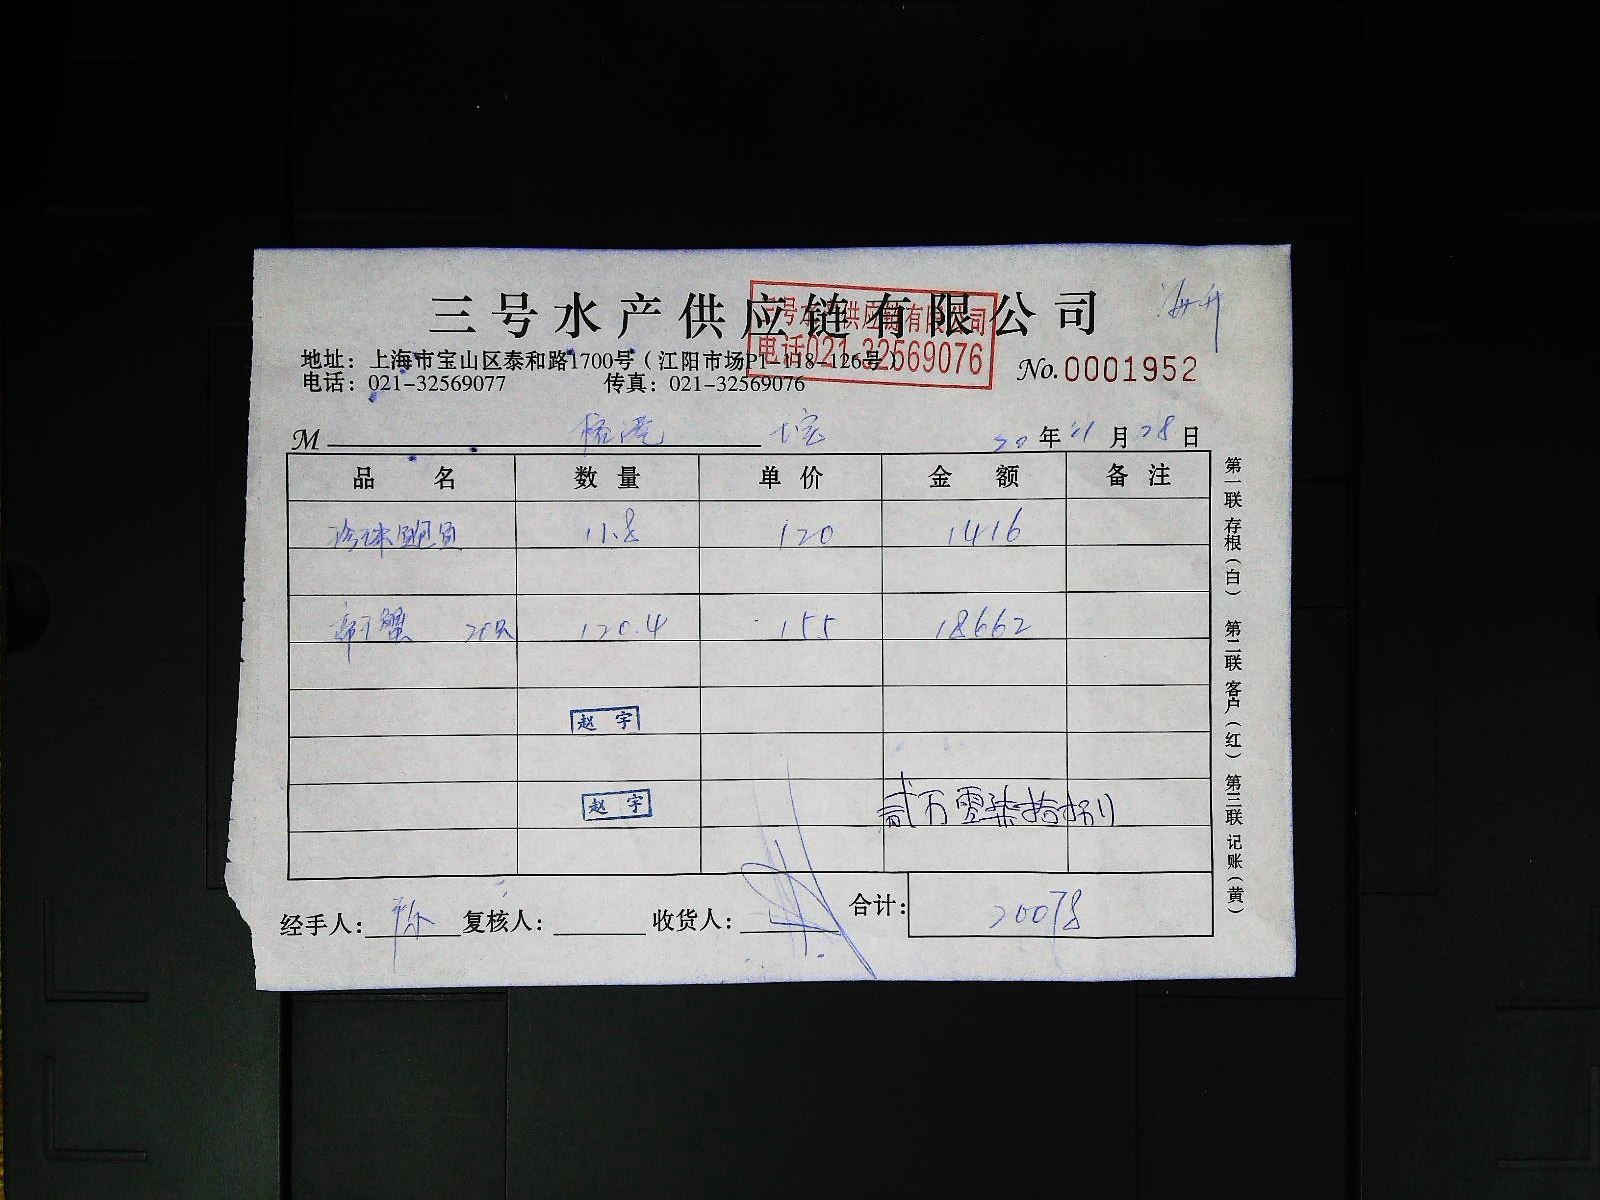 三号水产供应链有限公司
三号水产供应链有限公司
电话021-32569076
地址：上海市宝山区泰和路1700号（江阳市场P1-118-126号）
No.0001952
电话：021-32569077 传真：021-32569076
M
20年11月28日
品名 数量 单价 金额 备注
11.8 120 1416
帝王蟹 20只 120.4 155 18662
赵宇
赵宇
贰万零柒拾捌
经手人： 复核人： 收货人： 合计： 20078
第一联 存根（白） 第二联 客户（红） 第三联 记账（黄）